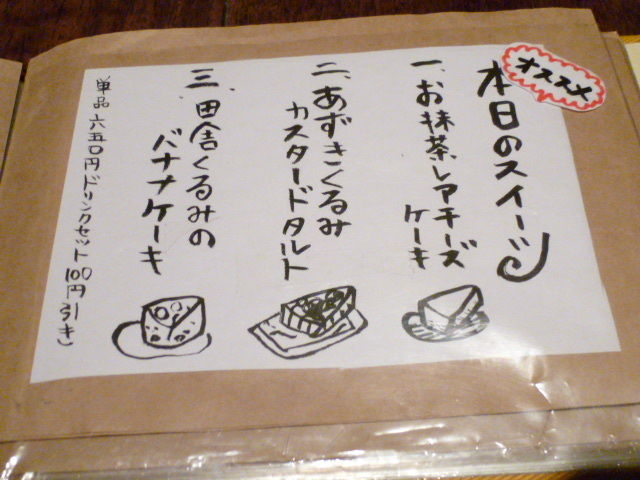 オススメ
本日のスイーツ
一、お抹茶レアチーズ
ケーキ
二、あずきくるみ
カスタードタルト
三、田舎くるみの
バナナケーキ
単品 六五〇円ドリンクセット100円引き